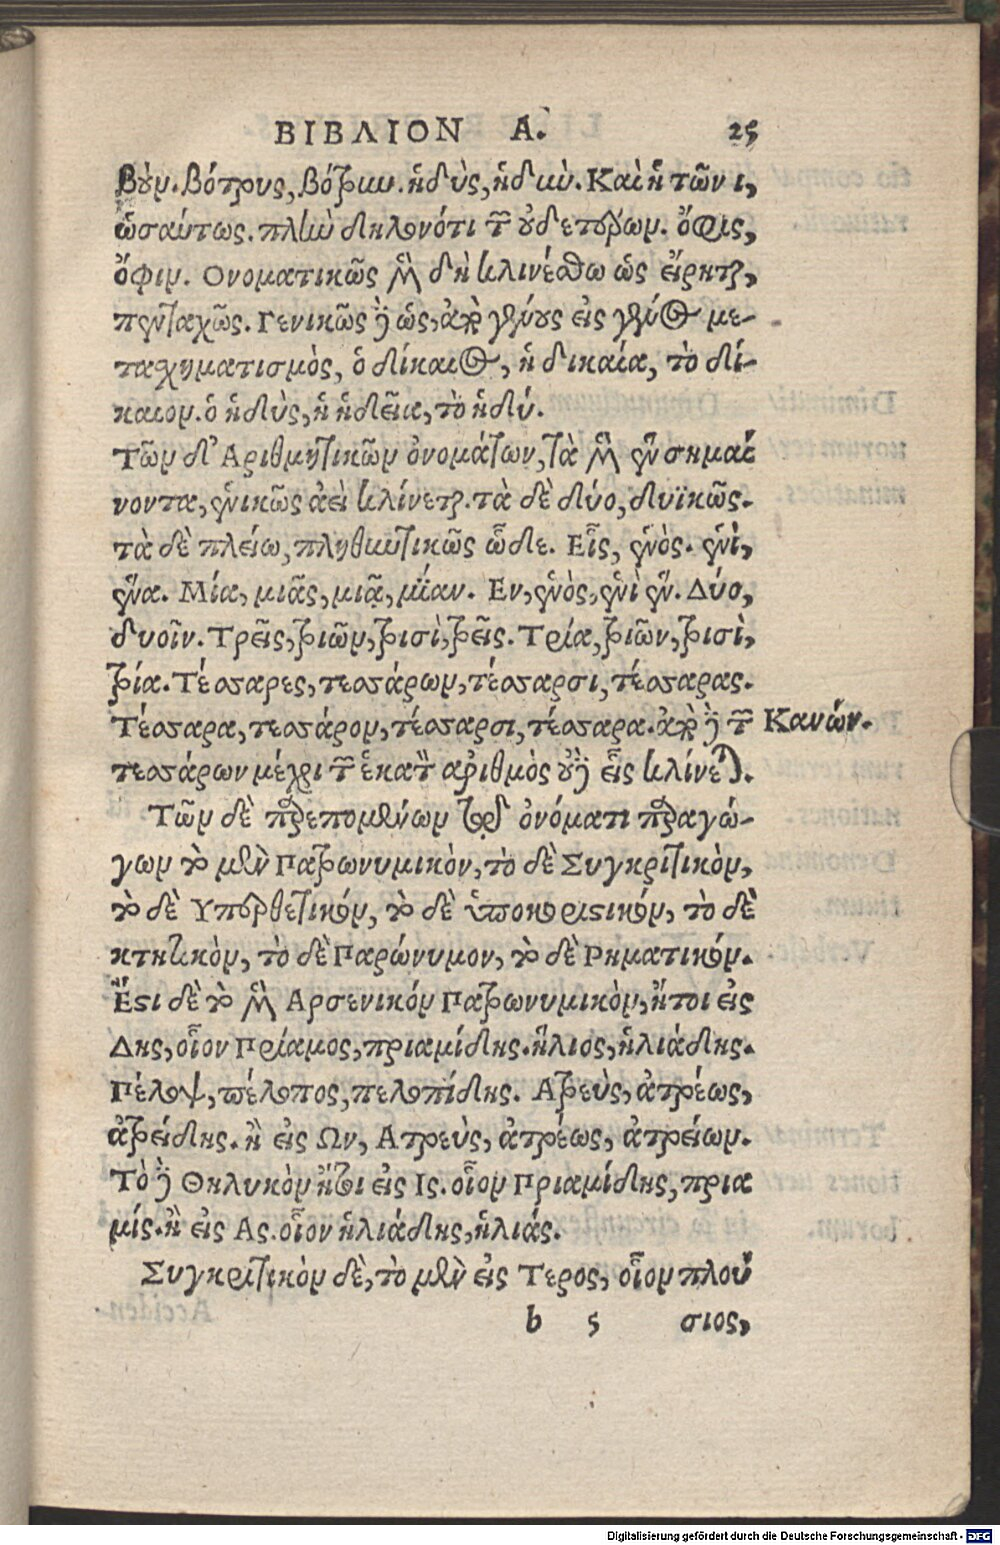 ΒΙΒΛΙΟΝ Α. 25
βοῦν. βότρυς, βότρυν. ἡδὺς, ἡδιὺ. Καὶ ἡ τῶν ι,
ὡσαύτως. πλὴν δηλονότι τῶν οὐδετέρων. ὄφις,
ὄφιν. Ονοματικῶς μὲν δὴ κλινέσθω ὡς εἴρηται,
πανταχῶς. Γενικῶς δὲ ὡς, ἀπὸ γένους εἰς γένος με-
ταχηματισμὸς, ὁ δίκαιος, ἡ δικαία, τὸ δί-
καιον. ὁ ἡδὺς, ἡ ἡδεῖα, τὸ ἡδύ.
Τῶν δ' Αριθμητικῶν ὀνομάτων, τὰ μὲν ἓν σημαί
νοντα, ἑνικῶς ἀεὶ κλίνεται. τὰ δὲ δύο, δυϊκῶς.
τὰ δὲ πλείω, πληθυντικῶς ὧδε. Εἷς, ἑνὸς. ἑνὶ,
ἕνα. Μία, μιᾶς, μιᾷ, μίαν. Εν, ἑνὸς, ἑνὶ ἕν. Δύο,
δυοῖν. Τρεῖς, τριῶν, τρισὶ, τρεῖς. Τρία, τριῶν, τρισὶ,
τρία. Τέσσαρες, τεσσάρων, τέσσαρσι, τέσσαρας.
Τέσσαρα, τεσσάρον, τέσσαρσι, τέσσαρα. ἀπὸ δὲ τῶν Κανών.
τεσσάρων μέχρι τῶν ἑκατὸν ἀριθμὸς οὐδεὶς κλίνεται.
Τῶν δὲ παρεπομένων τῷ ὀνόματι παραγώ-
γων τὸ μὲν Πατρωνυμικὸν, τὸ δὲ Συγκριτικὸν,
τὸ δὲ Υπερθετικόν, τὸ δὲ ὑποκοριστικόν, τὸ δὲ
κτητικὸν, τὸ δὲ Παρώνυμον, τὸ δὲ Ρηματικόν.
Ἔστι δὲ τὸ μὲν Αρσενικόν Πατρωνυμικὸν, ἤτοι εἰς
Δης, οἷον Πρίαμος, πριαμίδης. ἥλιος, ἡλιάδης.
Πέλοψ, πέλοπος, πελοπίδης. Ατρεὺς, ἀτρέως,
ἀτρείδης. ἢ εἰς Ων, Ατρεὺς, ἀτρέως, ἀτρείων.
Τὸ δὲ Θηλυκὸν ἤτοι εἰς Ις. οἷον Πριαμίδης, πρια
μίς. ἢ εἰς Ας. οἷον ἡλιάδης, ἡλιάς.
Συγκριτικὸν δὲ, τὸ μὲν εἰς Τερος, οἷον πλού
b 5 σιος,
Digitalisierung gefördert durch die Deutsche Forschungsgemeinschaft - DFG